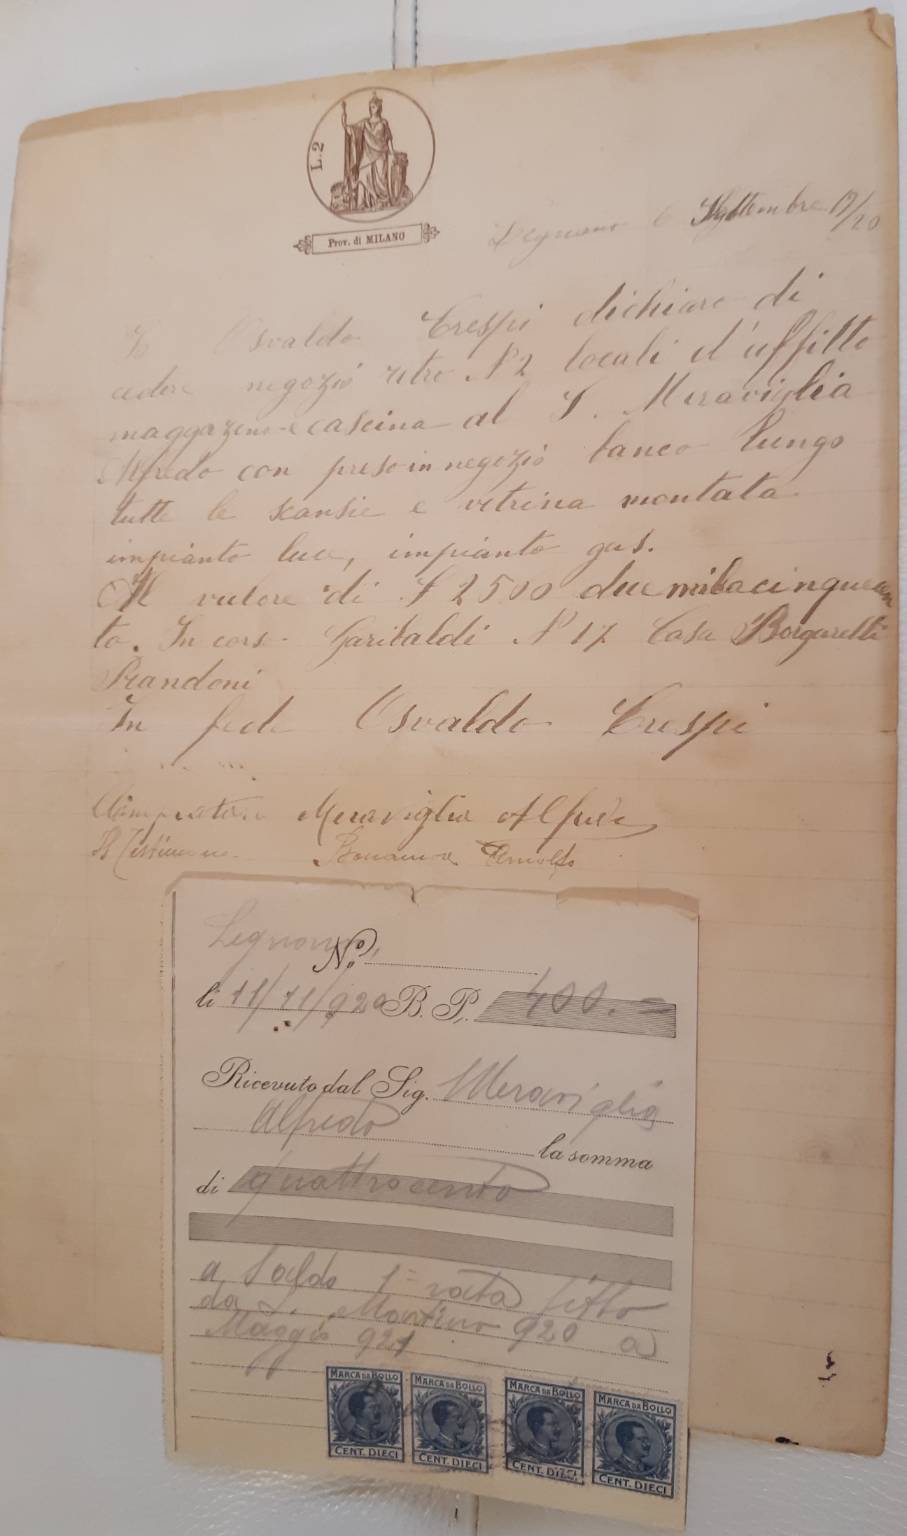 L. 2
Prov. di MILANO
Legnano 6 Settembre 19/20
Io Osvaldo Crespi dichiaro di
cedere negozio retro N 2 locali d'affitto
maggazeno e cascina al S. Meraviglia
Alfredo con preso in negozio banco lungo
tutte le scansie e vetrina montata
impianto luce, impianto gas.
Il valore di £ 2500 duemilacinquecen
to. In corso Garibaldi N 17 Casa Borgarelli
Prandoni
In fede Osvaldo Crespi
Compratore Meraviglia Alfredo
Il Testimone
Legnano,
No.
li 11/11/920 B. P. 400.=
Ricevuto dal Sig. Meraviglia
Alfredo la somma
di quattrocento
a Saldo 1= rata fitto
da S. Martino 920 a
Maggio 921
MARCA DA BOLLO MARCA DA BOLLO MARCA DA BOLLO MARCA DA BOLLO
CENT. DIECI CENT. DIECI CENT. DIECI CENT. DIECI